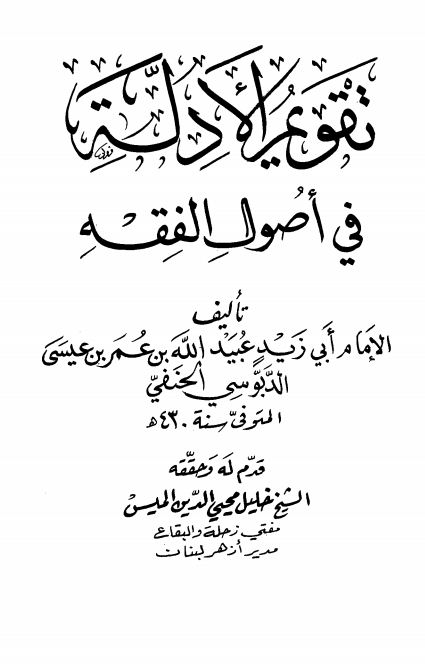 تَقْوِيمُ الأَدِلَّةِ
فِي أُصُولِ الفِقْهِ
تأليف
الإمام أبي زيد عبيد الله بن عمر بن عيسى
الدّبّوسي الحنفيّ
المتوفى سنة ٤٣٠ هـ
قدّم له وحققه
الشيخ خليل محيي الدين الميس
مفتي زحلة والبقاع
مدير أزهر لبنان